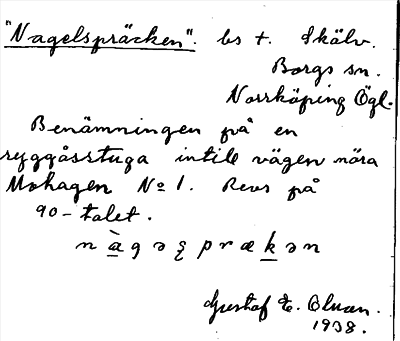 "Nagelspräcken". bs t. Skälv.
Borgs sn.
Norrköping Ögl.
Benämningen på en
ryggåsstuga intill vägen nära
Mohagen No 1. Revs på
90-talet.
n à g ə ʂ p r æ k ə n
Gustaf E. Olson.
1938.